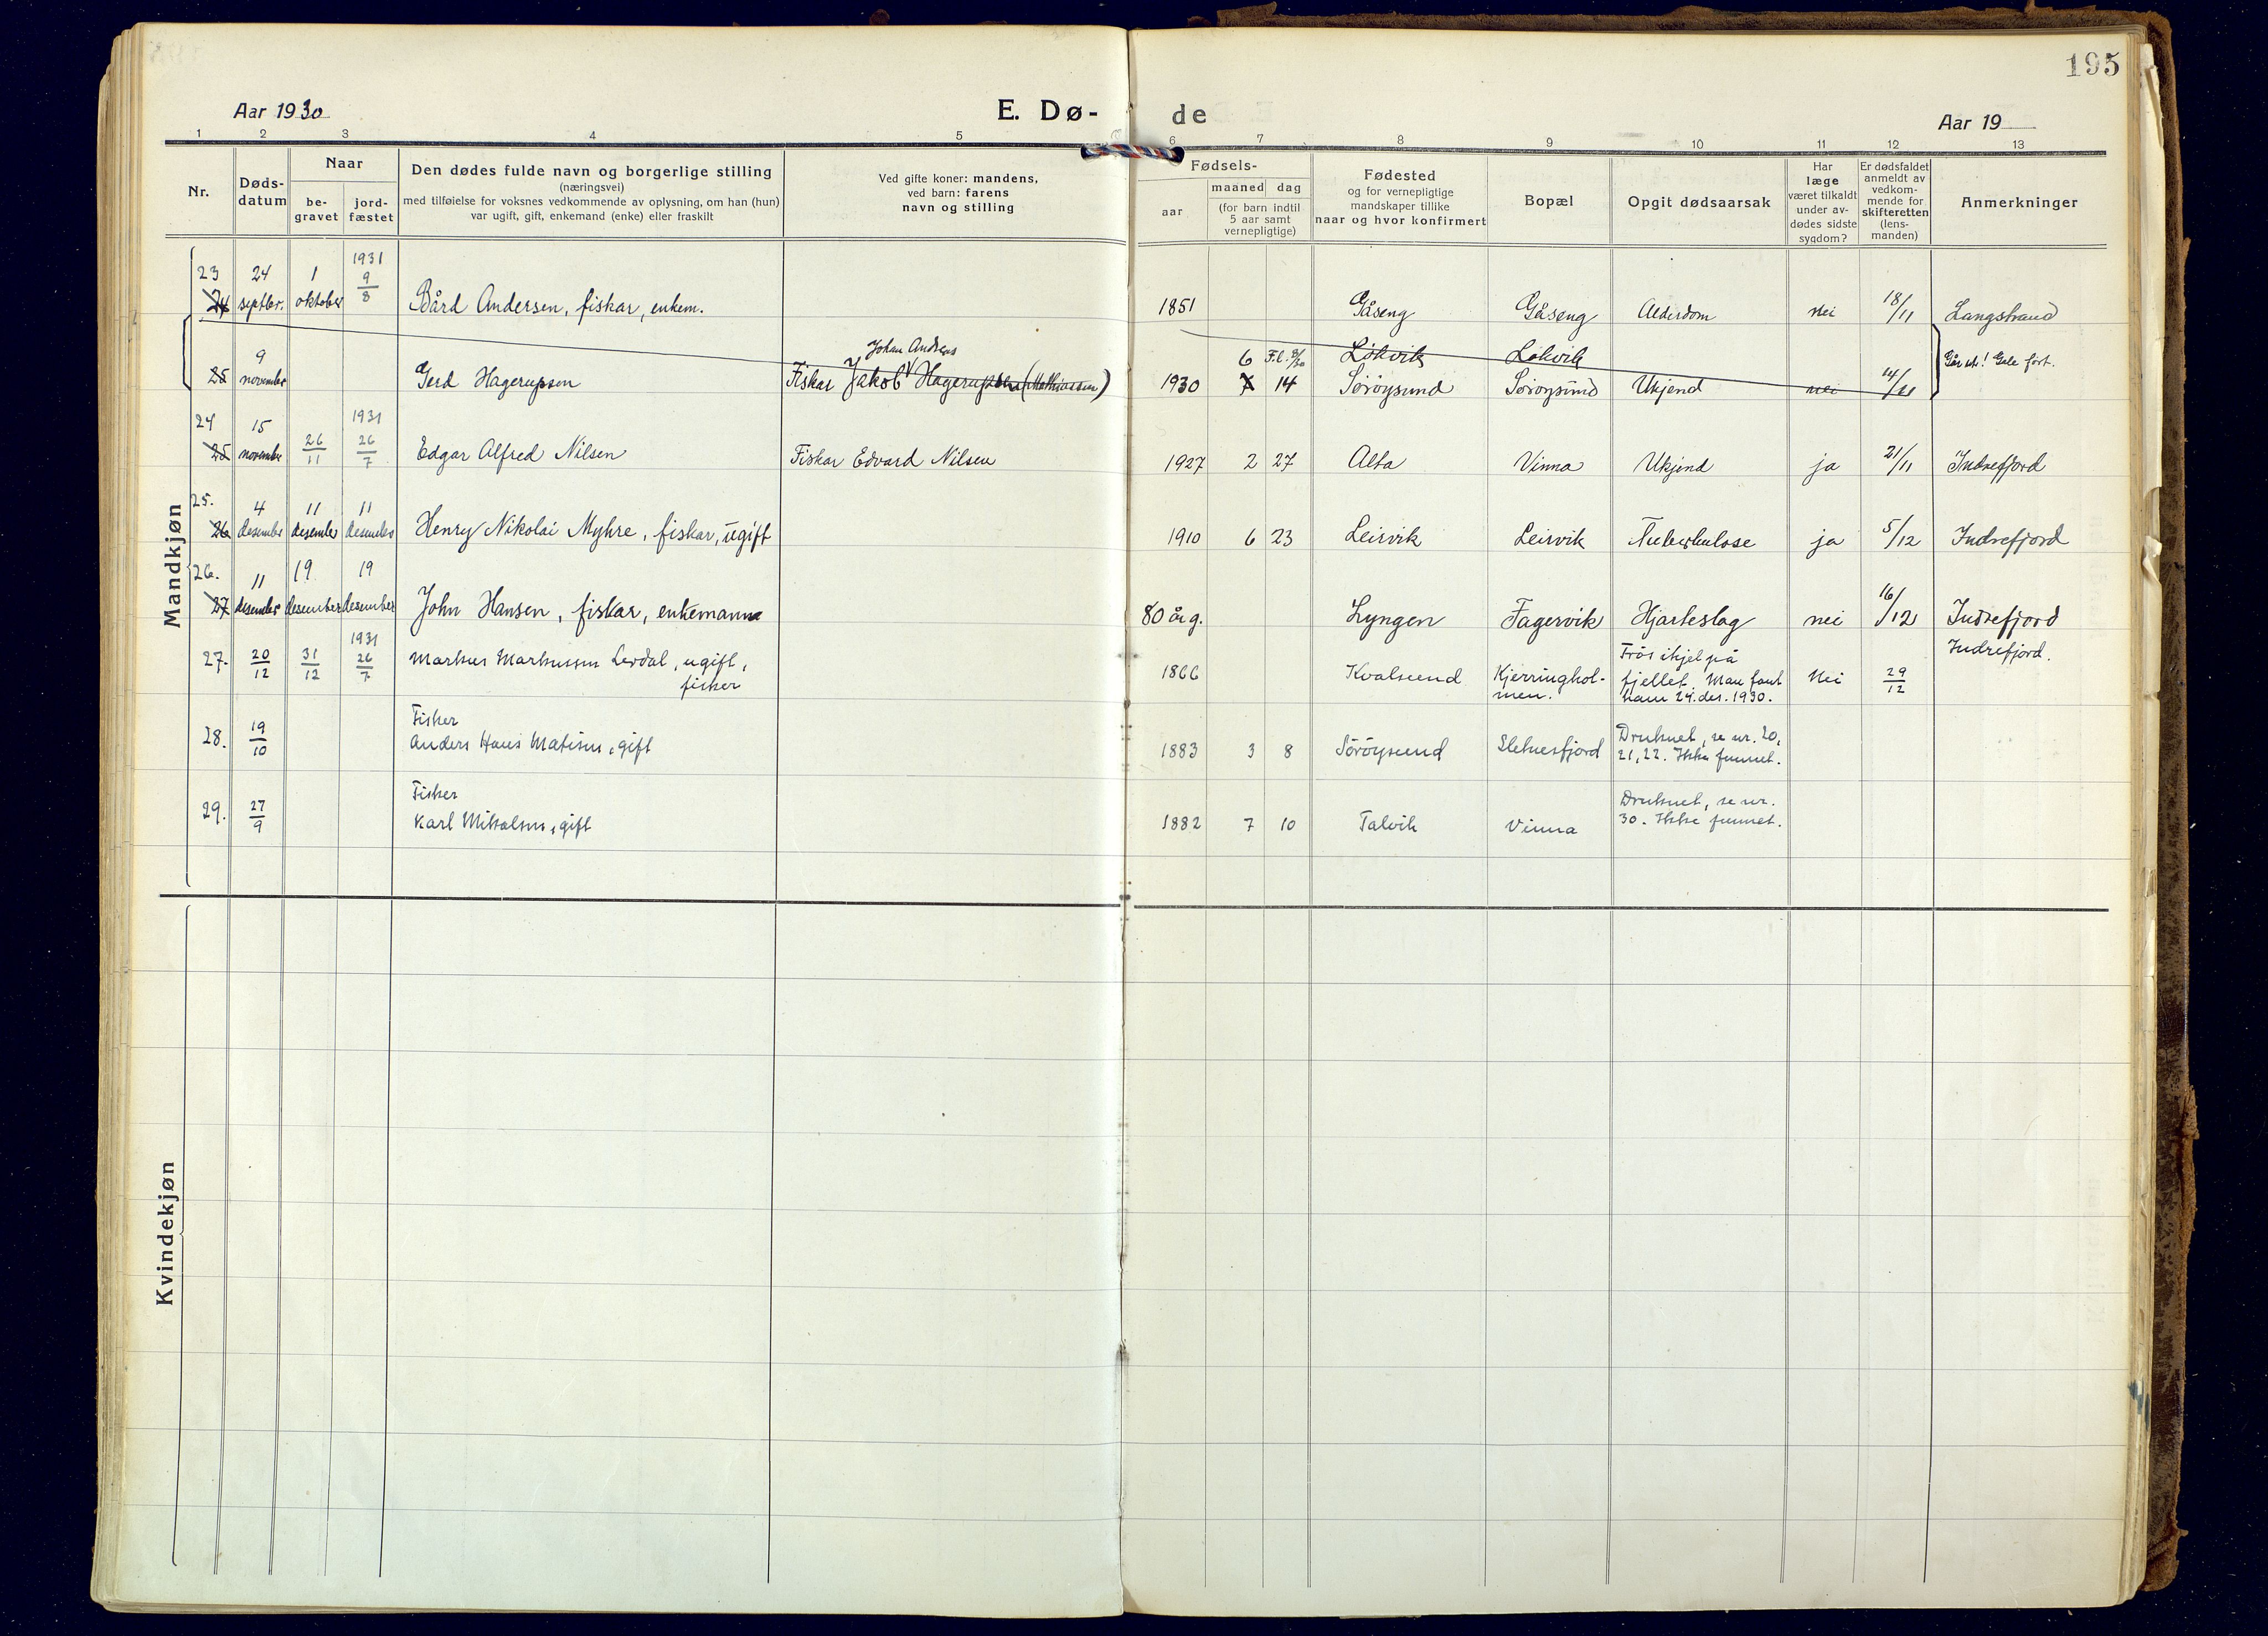 195
Aar 1930
E. Dø-
de
Aar 19
1 2 3 4 5 6 7 8 9 10 11 12 13
Nr.
Døds-
datum
Naar
be-
gravet
jord-
fæstet
Den dødes fulde navn og borgerlige stilling
(næringsvei)
med tilføielse for voksnes vedkommende av oplysning, om han (hun)
var ugift, gift, enkemand (enke) eller fraskilt
Ved gifte koner: mandens,
ved barn: farens
navn og stilling
Fødsels-
aar
maaned dag
(for barn indtil
5 aar samt
vernepligtige)
Fødested
og for vernepligtige
mandskaper tillike
naar og hvor konfirmert
Bopæl
Opgit dødsaarsak
Har
læge
været tilkaldt
under av-
dødes sidste
sygdom?
Er dødsfaldet
anmeldt av
vedkom-
mende for
skifteretten
(lens-
manden)
Anmerkninger
Mandkjøn
1931
23 24 1 9/8
24 septbr. oktober Bård Andersen, fiskar, enkem. 1851 Gåseng Gåseng Alderdom nei 18/11 Langstrand
9 Johan Andreas 6 Lökvik Lökvik
25 november Gerd Hagerupsen Fiskar Jakob Hagerupsen (Mathiassen) 1930 7 14 Söröysund Söröysund Ukjend nei 14/11 Går ut! Gale ført.
24 15 1931
25 november 26/11 26/7 Edgar Alfred Nilsen Fiskar Edvard Nilsen 1927 2 27 Alta Vinna Ukjend ja 21/11 Indrefjord
25. 4 11 11
26 desember desember desember Henry Nikolai Myhre, fiskar, ugift 1910 6 23 Leirvik Leirvik Tuberkulose ja 5/12 Indrefjord
26. 11 19 19
27 desember desember desember John Hansen, fiskar, enkemann 80 årg. Lyngen Fagervik Hjarteslag nei 16/12 Indrefjord
1931
27. 20/12 31/12 26/7 Markus Markussen Lerdal, ugift,
fisker
1866 Kvalsund Kjerringhol-
men.
Frös ihjel på
fjellet. Man fant
ham 24. des. 1930.
Nei 29/12 Indrefjord.
28. 19/10 Fisker
Anders Hans Matisen, gift
1883 3 8 Söröysund Sletnesfjord Druknet, se nr. 20,
21, 22. Ikke funnet.
29. 27/9 Fisker
Karl Mikalsen, gift
1882 7 10 Talvik Vinna Druknet, se nr.
30. Ikke funnet.
Kvindekjøn